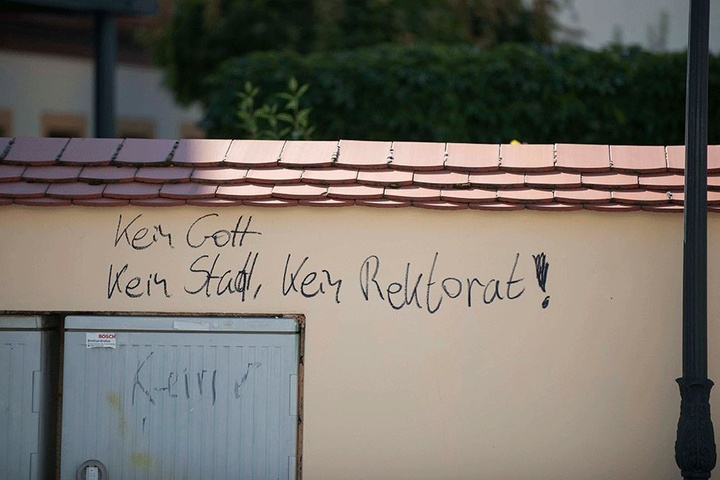 Kein Gott
Kein Staat, Kein Rektorat!
BOSCH
Kein